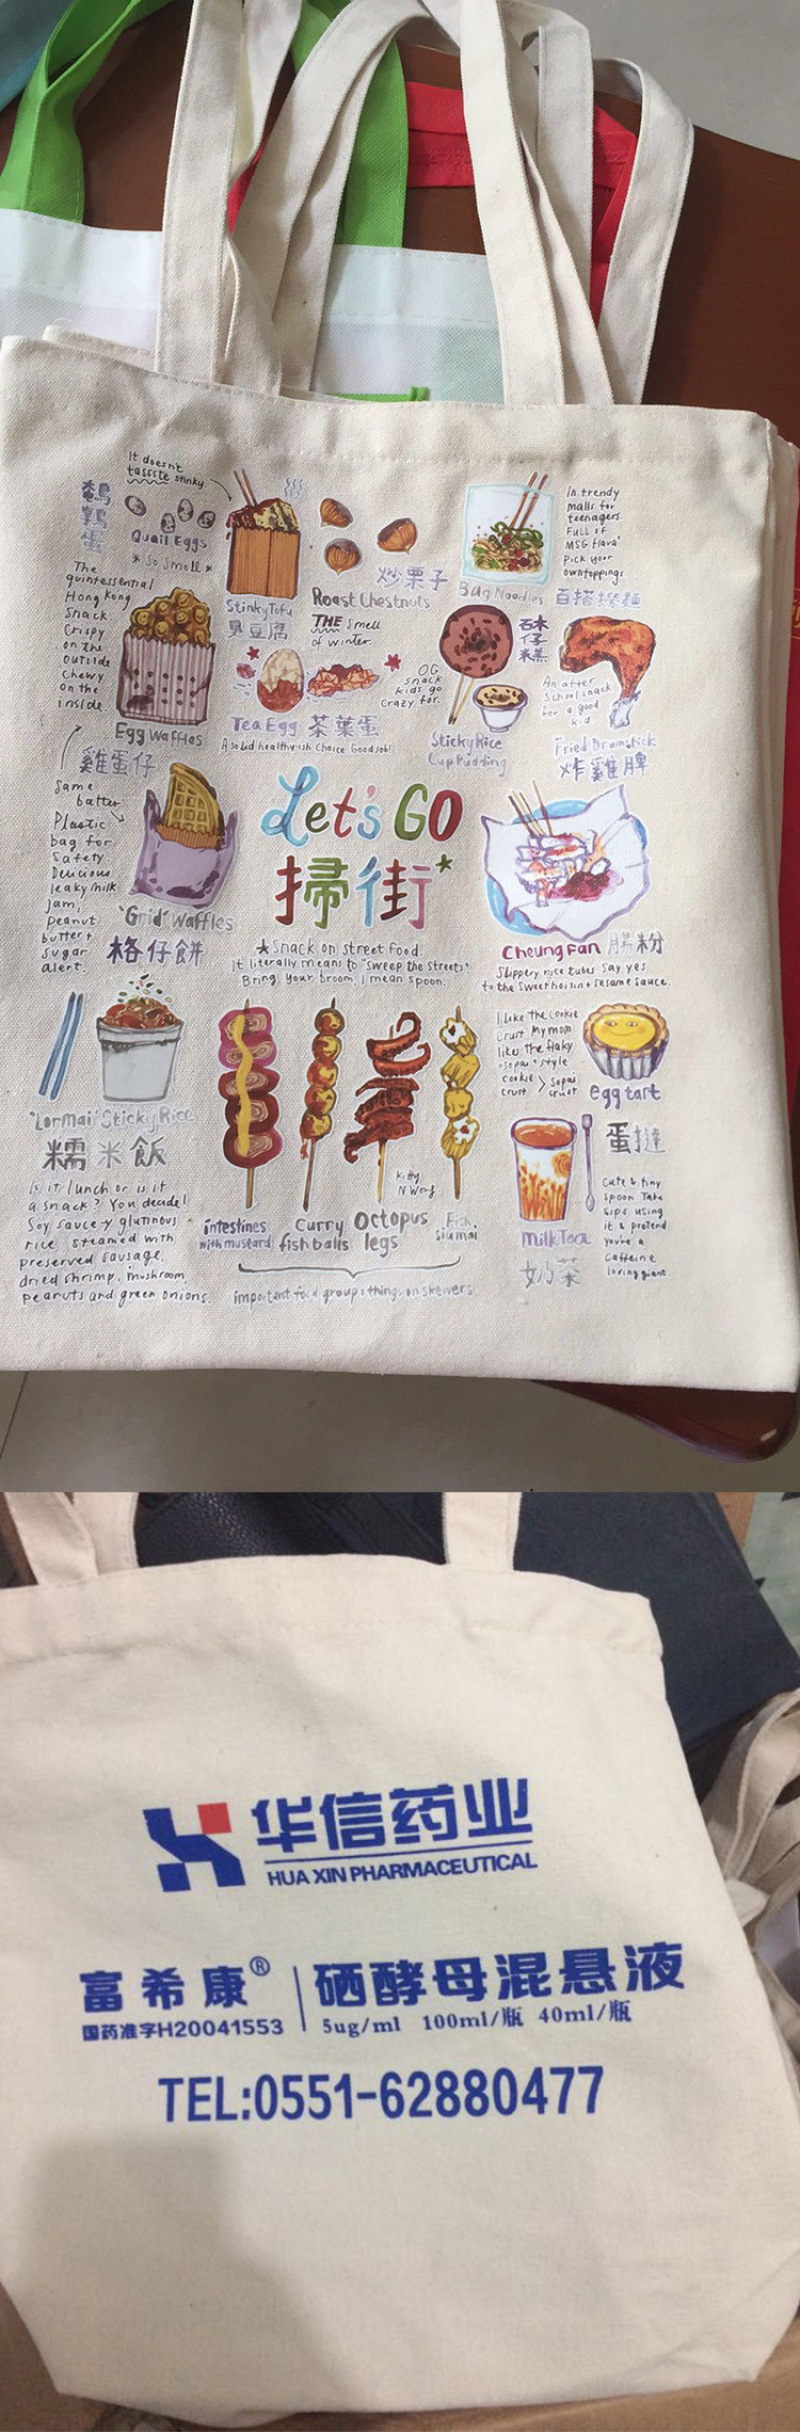 It doesn't
tassste stinky
鵪鶉蛋
Quail Eggs
*So Small*
Stinky Tofu
臭豆腐
Roast Chestnuts
炒栗子
THE smell
of winter.
Bag Noodles
百搭撈麵
In trendy
malls for
teenagers.
FULL OF
MSG flava'
Pick your
own toppings.
The
quintessential
Hong Kong
Snack.
Crispy
on the
outside
chewy
on the
inside.
Egg Waffles
雞蛋仔
Tea Egg 茶葉蛋
A solid healthy-ish choice. Good job!
OG
snack
kids go
crazy for.
砵仔糕
Sticky Rice
Cup Pudding
An after
School snack
for a good
kid
Fried Drumstick
炸雞脾
Same
batter
Plastic
bag for
Safety
Delicious
leaky milk
jam,
peanut
butter +
sugar
alert.
'Grid' Waffles
格仔餅
Let's GO
掃街*
*Snack on street food.
It literally means to "sweep the streets"
Bring your broom, I mean spoon.
Cheung Fan 腸粉
Slippery rice tubes say yes
to the sweet hoisin + sesame sauce.
'Lor Mai' Sticky Rice
糯米飯
Is it lunch or is it
a snack? You decide!
Soy sauce-y glutinous
rice steamed with
preserved sausage,
dried shrimp, mushroom,
peanuts and green onions.
intestines
with mustard
Curry
fishballs
Octopus
legs
Fish
siumai
Kitty
N Wong
important food group: things on skewers
I like the cookie
crust. My mom
likes the flaky
"sopai" style
cookie
crust
sopai
crust
egg tart
蛋撻
Milk Tea
奶茶
Cute & tiny
spoon. Take
sips using
it & pretend
you're a
caffeine
loving giant
华信药业
HUA XIN PHARMACEUTICAL
富希康® 硒酵母混悬液
国药准字H20041553 5ug/ml 100ml/瓶 40ml/瓶
TEL:0551-62880477